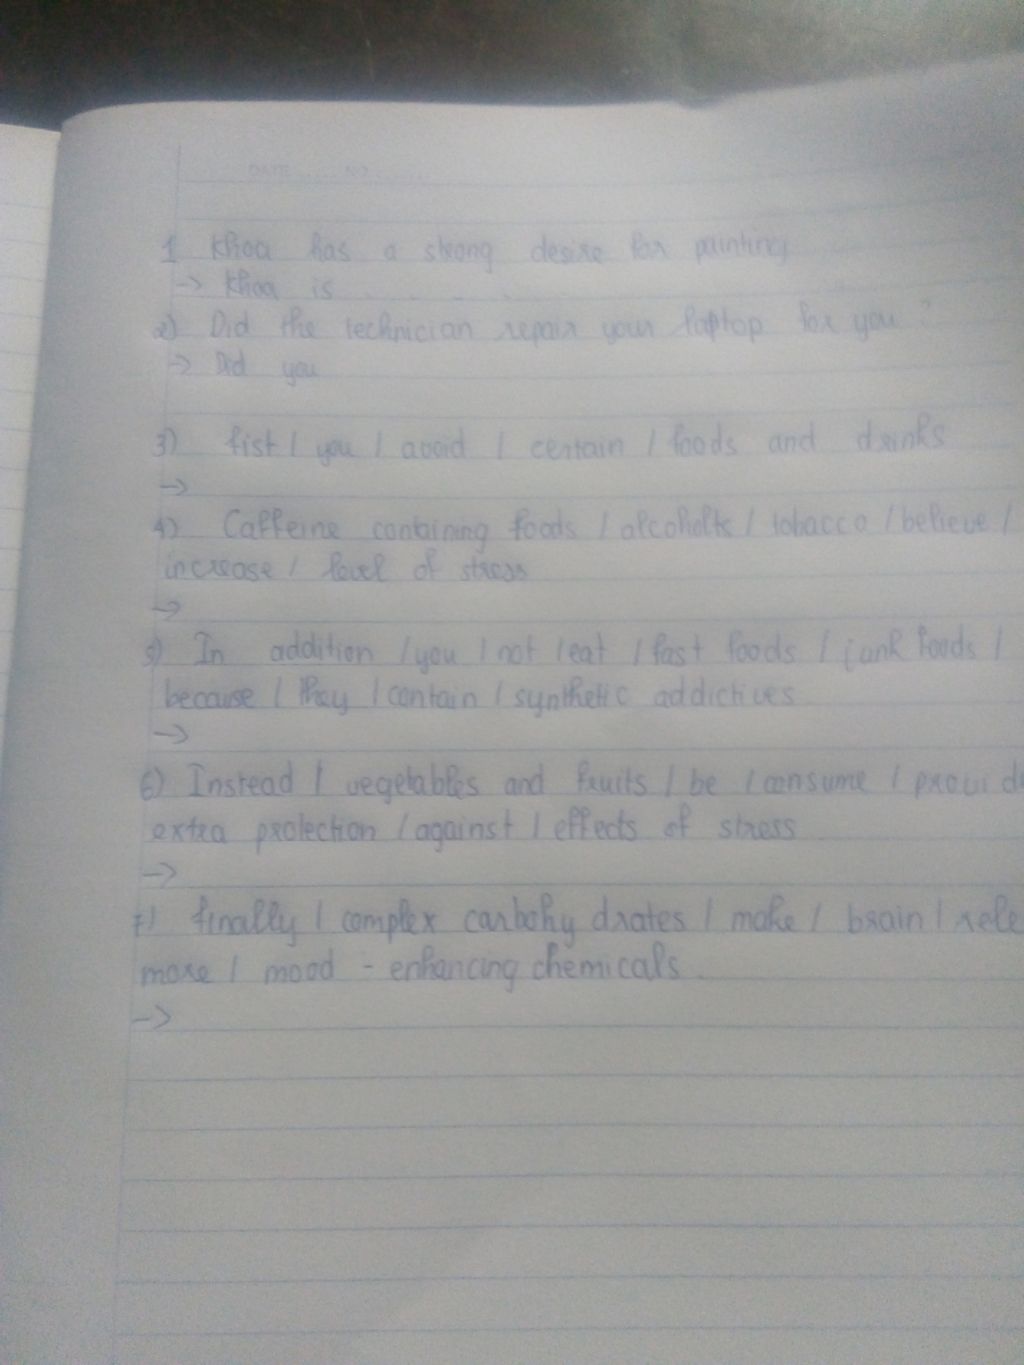 DATE ...... NO ......
1 Khoa has a strong desire for painting
-> Khoa is . . . . .
2) Did the technician repair your laptop for you ?
-> Did you
3) fist / you / avoid / certain / foods and drinks
->
4) Caffeine containing foods / / tobacco / believe /
increase / level of stress
->
5) In addition / you / not / eat / fast foods / junk foods /
because / they / contain / synthetic addictives
->
6) Instead / vegetables and fruits / be / consume /
extra protection / against / effects of stress
->
7) finally / complex carbohy drates / make / brain /
more / mood - enhancing chemicals.
->